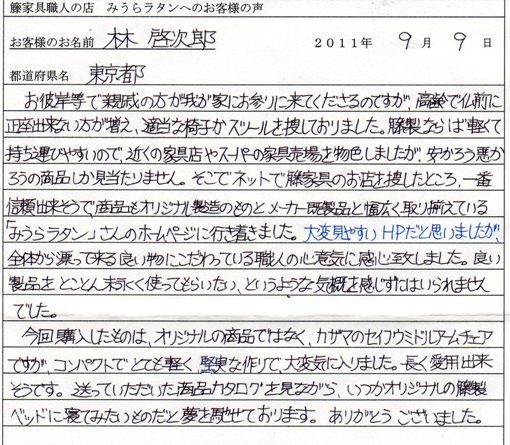 籐家具職人の店 みうらラタンへのお客様の声
お客様のお名前 林 啓次郎 2011年 9月 9日
都道府県名 東京都
お彼岸等で親戚の方が我が家にお参りに来てくださるのですが、高齢で仏前に
正座出来ない方が増え、適当な椅子かスツールを捜しておりました。籐製ならば軽くて
持ち運びやすいので、近くの家具店やスーパーの家具売場を物色しましたが、安かろう悪か
ろうの商品しか見当たりません。そこでネットで籐家具のお店を捜したところ、一番
信頼出来そうで、商品もオリジナル製造のものとメーカー既製品と幅広く取り揃えている
「みうらラタン」さんのホームページに行き着きました。大変見やすいHPだと思いましたが、
全体から漂って来る良い物にこだわっている職人の心意気に感心至りました。良い
製品をとことん末永く使ってもらいたい、というような気概を感じずにはいられません
でした。
今回購入したものは、オリジナルの商品ではなく、カザマのセイフウミドルアームチェア
ですが、コンパクトでとても軽く、堅実な作りで、大変気に入りました。長く愛用出来
そうです。送っていただいた商品カタログを見ながら、いつかオリジナルの籐製
ベッドに寝てみたいものだと夢を馳せております。ありがとうございました。